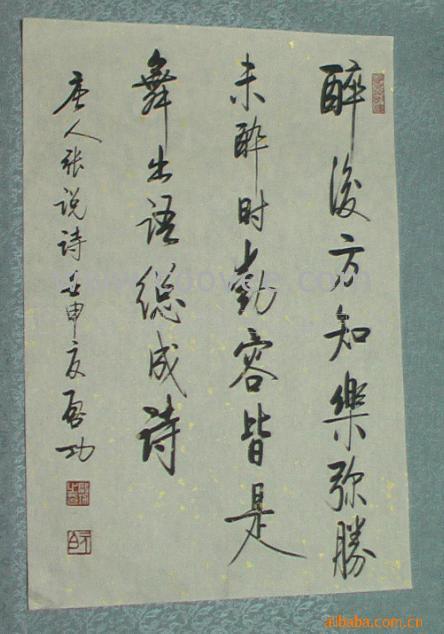 醉後方知樂弥勝
未醉时动容皆是
舞出语總成诗
唐人张说诗壬申夏启功
alibaba.com.cn